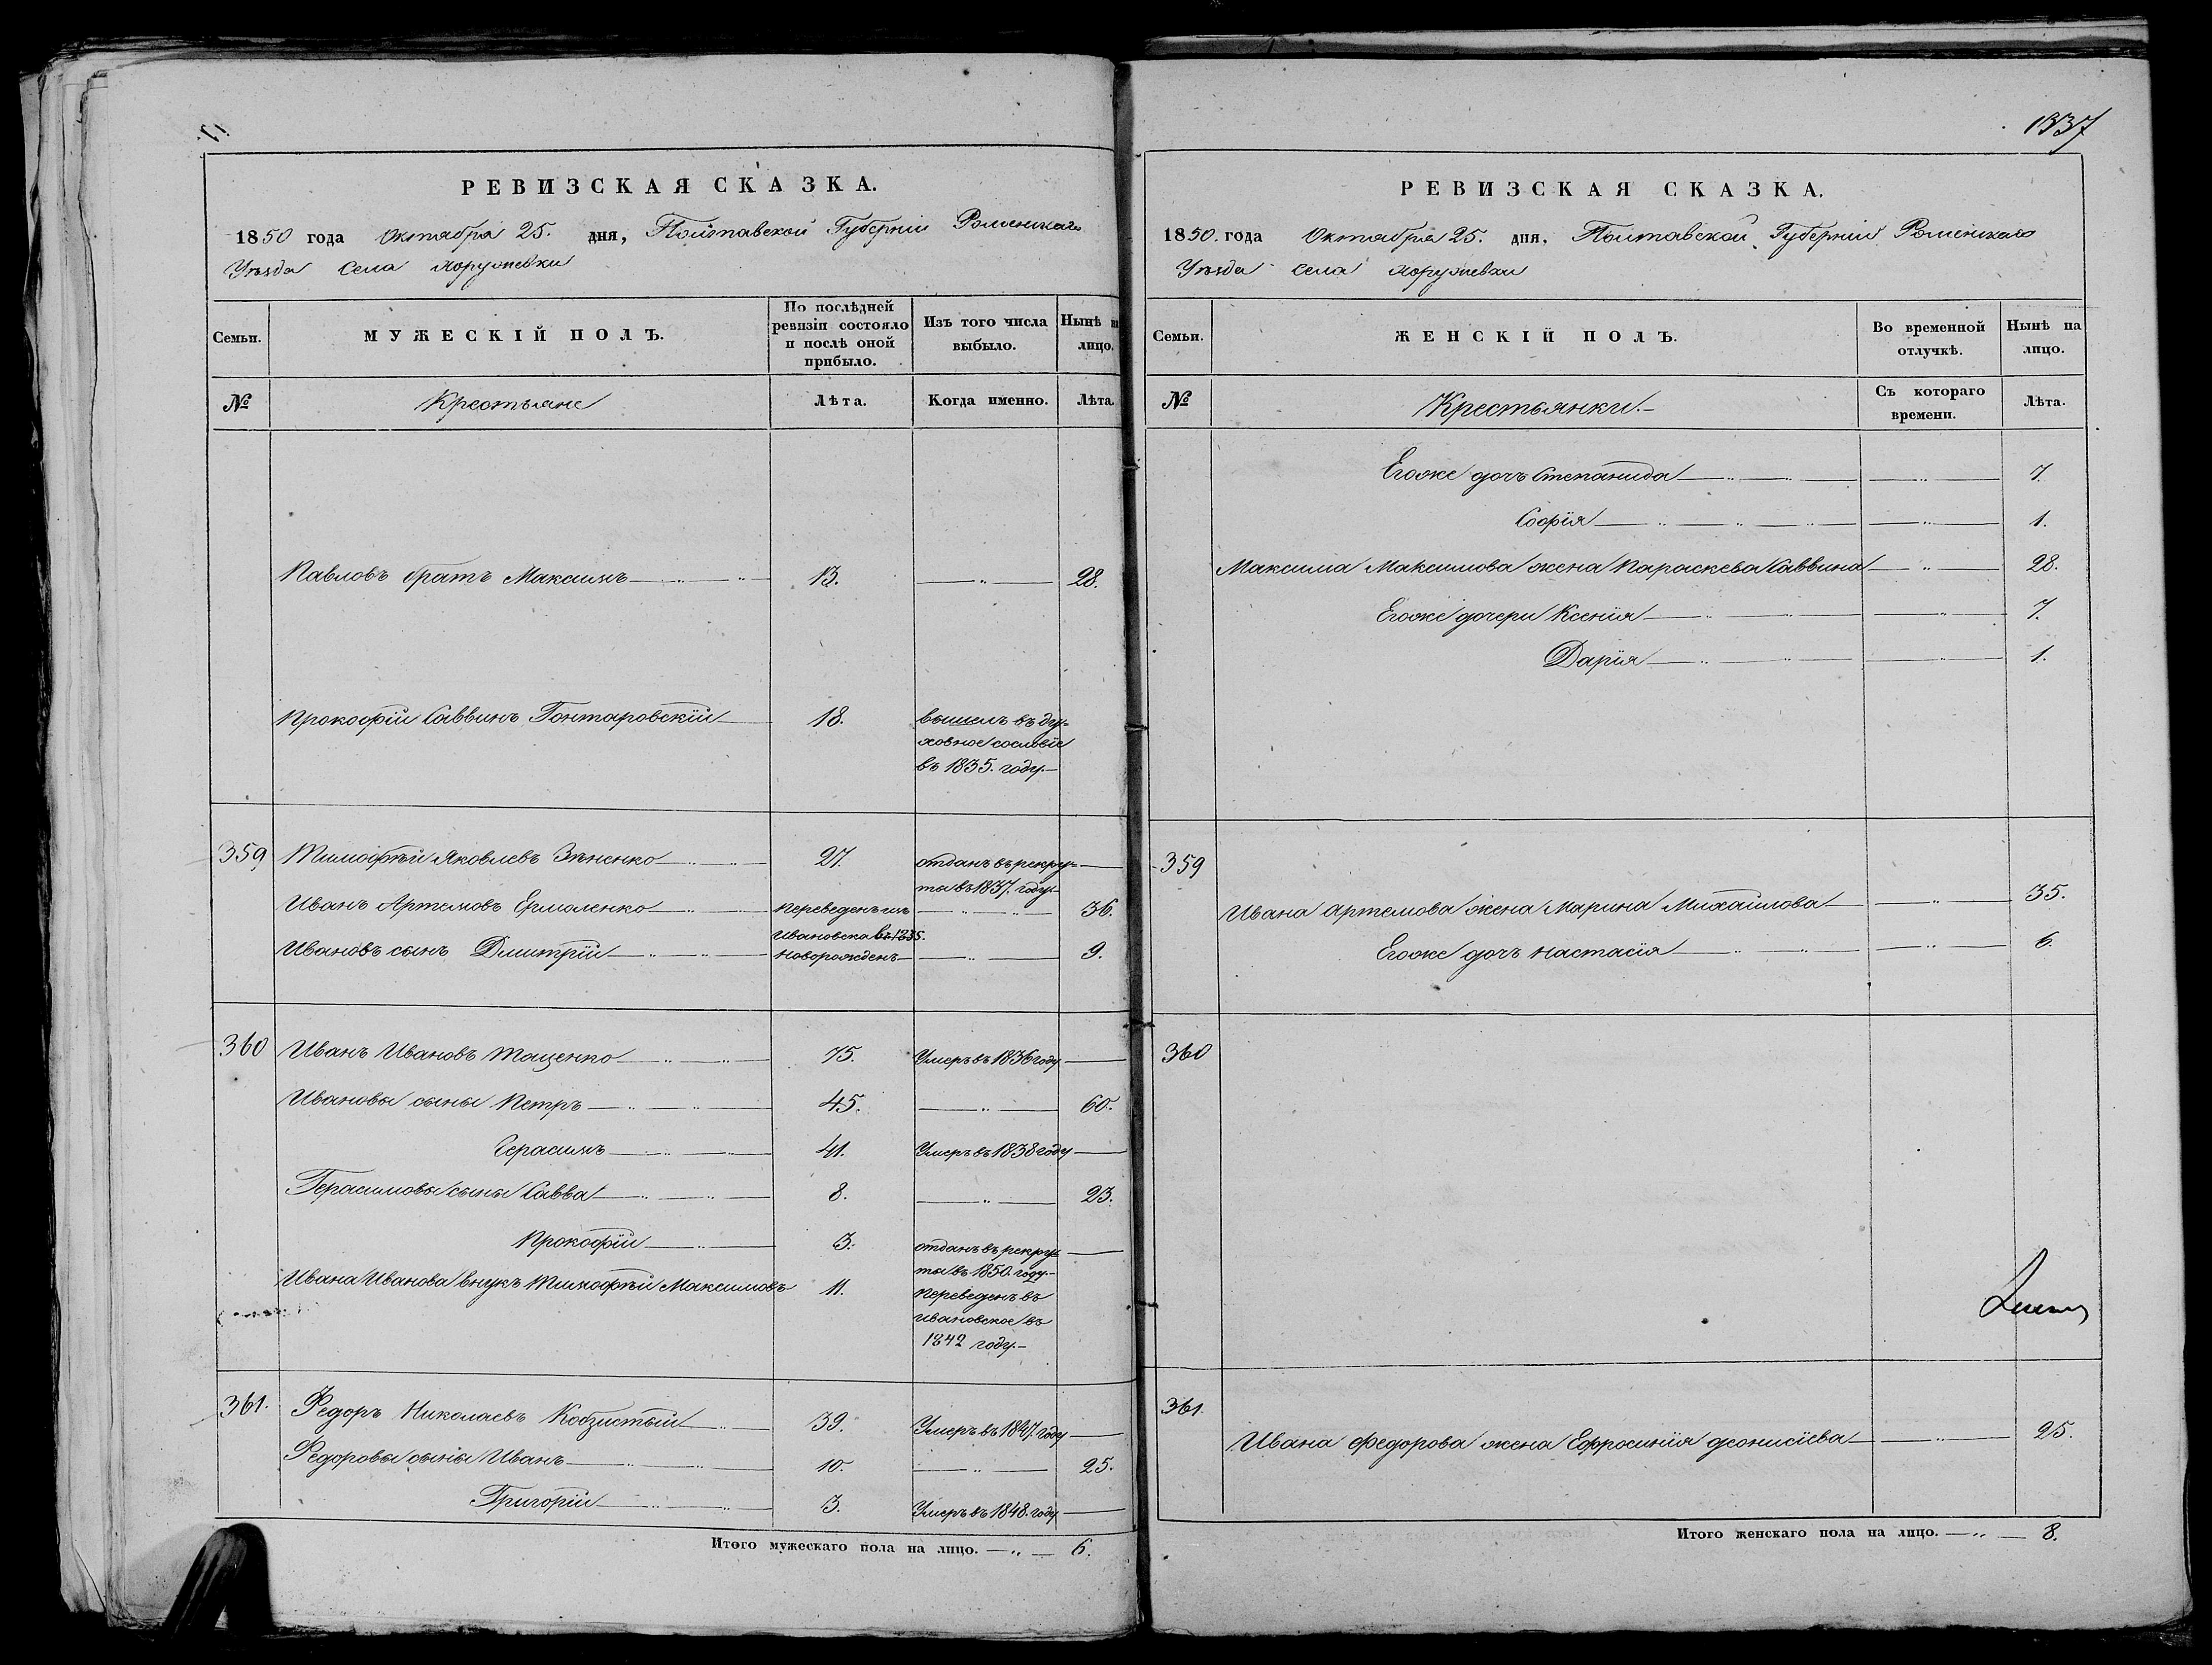 РЕВИЗСКАЯ СКАЗКА.
1850 года Октября 25. дня, Полтавской Губерніи Роменскаго
Уѣзда Села Хоружевки
Семьи.
МУЖЕСКІЙ ПОЛЪ.
По послѣдней ревизіи состояло и послѣ оной прибыло.
Изъ того числа выбыло.
Нынѣ на лицо.
№
Крестьяне
Лѣта.
Когда именно.
Лѣта.
Павловъ братъ Максимъ — 13. — 28.
Прокофій Саввинъ Гонтаровскій — 18. вышелъ въ ду-
ховное сословіе
въ 1835. году.—
359 Тимофѣй Яковлевъ Зѣненко — 27. отданъ въ рекру-
ты въ 1837. году.—
Иванъ Артемовъ Ермоленко — переведенъ изъ — 36.
Ивановска въ 1835.
Ивановъ сынъ Дмитрій — новорожденъ — 9.
360 Иванъ Ивановъ Тощенко — 75. Умеръ въ 1836 году —
Ивановы сыны Петръ — 45. — 60.
Герасимъ — 41. Умеръ въ 1838 году —
Герасимовы сыны Савва — 8. — 23.
Прокофій — 3. отданъ въ рекру-
ты въ 1850. году.—
Ивана Иванова внукъ Тимофѣй Максимовъ 11. переведенъ въ
ивановское въ
1842 году.—
361. Федоръ Николаевъ Кобзистый — 39. Умеръ въ 1847. году —
Федоровы сыны Иванъ — 10. — 25.
Григорій — 3. Умеръ въ 1848. году —
Итого мужескаго пола на лицо. — 6.
1337
РЕВИЗСКАЯ СКАЗКА.
1850. года Октября 25. дня, Полтавской Губерніи Роменскаго
Уѣзда Села Хоружевки
Семьи.
ЖЕНСКІЙ ПОЛЪ.
Во временной отлучкѣ.
Нынѣ на лицо.
№
Крестьянки.—
Съ котораго времени.
Лѣта.
Егоже дочь Степанида — 7.
Софія — 1.
Максима Максимова жена Параскева Саввина — 28.
Егоже дочери Ксенія — 7.
Дарія — 1.
359
Ивана Артемова жена Марина Михайлова — 35.
Егоже дочь Настасія — 6.
360
361.
Ивана Федорова жена Ефросинія Деонисіева — 25.
Итого женскаго пола на лицо. — 8.